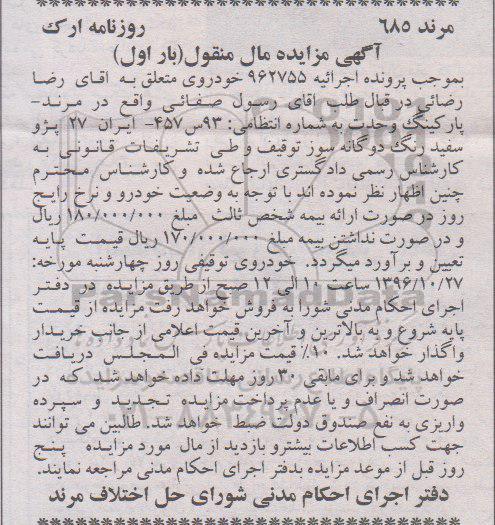 مرند ٦٨٥ روزنامه ارک
آگهی مزایده مال منقول(بار اول)
بموجب پرونده اجرائیه ۹۶۲۷۵۵ خودروی متعلق به آقای رضا
رضائی در قبال طلب آقای رسول صفائی واقع در مرند-
پارکینگ وحدت به شماره انتظامی: ۹۳س۴۵۷- ایران ۲۷ پژو
سفید رنگ دوگانه سوز توقیف و طی تشریفات قانونی به
کارشناس رسمی دادگستری ارجاع شده و کارشناس محترم
چنین اظهار نظر نموده اند با توجه به وضعیت خودرو و نرخ رایج
روز در صورت ارائه بیمه شخص ثالث مبلغ ۱۸۰/۰۰۰/۰۰۰ ریال
و در صورت نداشتن بیمه مبلغ ۱۷۰/۰۰۰/۰۰۰ ریال قیمت پایه
تعیین و برآورد میگردد. خودروی توقیفی روز چهارشنبه مورخه:
۱۳۹۶/۱۰/۲۷ ساعت ۱۰ الی ۱۲ صبح از طریق مزایده در دفتر
اجرای احکام مدنی شورا به فروش خواهد رفت مزایده از قیمت
پایه شروع و به بالاترین و آخرین قیمت اعلامی از جانب خریدار
واگذار خواهد شد. ۱۰٪ قیمت مزایده فی المجلس دریافت
خواهد شد و برای مابقی ۳۰ روز مهلت داده خواهد شد که در
صورت انصراف و یا عدم پرداخت مزایده تجدید و سپرده
واریزی به نفع صندوق دولت ضبط خواهد شد. طالبین می توانند
جهت کسب اطلاعات بیشتر و بازدید از مال مورد مزایده پنج
روز قبل از موعد مزایده بدفتر اجرای احکام مدنی مراجعه نمایند.
دفتر اجرای احکام مدنی شورای حل اختلاف مرند
ParsNamadData
۰۲۱-۸۸۳۴۹۶۷۰-۵